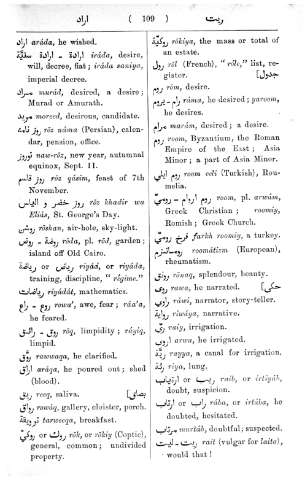 اراد ( 109 ) ريت
اراد arāda, he wished.
ارادة - ارادة سنيّة irāda, desire,
will, decree, fiat; irāda sanīya,
imperial decree.
مراد murād, desired, a desire;
Murad or Amurath.
مريد morīd, desirous, candidate.
روز نامة rōz nāma (Persian), calen-
dar, pension, office.
نوروز naw-rōz, new year, autumnal
equinox, Sept. 11.
روز قاسم rōz qāsim, feast of 7th
November.
روز خضر و الياس rōz khadir wa
Eliās, St. George's Day.
روشن rōshan, air-hole, sky-light.
روضة - روض rōda, pl. rōd, garden;
island off Old Cairo.
رياضة riyād, or riyāda,
training, discipline, "régime."
رياضيات riyādād, mathematics.
روع - راع rowa', awe, fear; rāa'a,
he feared.
روق - رائق rōq, limpidity; rāyiq,
limpid.
روّق rawwaqa, he clarified.
اراق arāqa, he poured out; shed
(blood).
ريق reeq, saliva. [بصاق]
رواق rawāq, gallery, cloister, porch.
ترويقة tarweeqa, breakfast.
روك or روكي rōk, or rōkiy (Coptic),
general, common; undivided
property.
روكيّة rōkiya, the mass or total of
an estate.
رول rōl (French), "rôle," list, re-
gister. [جدول]
روم rōm, desire.
رام - يروم rāma, he desired; yaroom,
he desires.
مرام marām, desired; a desire.
روم room, Byzantium, the Roman
Empire of the East; Asia
Minor; a part of Asia Minor.
روم ايلي room eeli (Turkish), Rou-
melia.
روم اروام - روميّ room, pl. arwām,
Greek Christian; roomiy,
Romish; Greek Church.
فرخ روميّ farkh roomiy, a turkey.
روماتزم roomātizm (European),
rheumatism.
رونق rōnaq, splendour, beauty.
روى rawa, he narrated. [حكى]
راوي rāwi, narrator, story-teller.
رواية riwāya, narrative.
ري raiy, irrigation.
اروى arwa, he irrigated.
ريّة rayya, a canal for irrigation.
رية riya, lung.
ريب or ارتياب raib, or irtiyāb,
doubt, suspicion.
راب or ارتاب rāba, or irtāba, he
doubted, hesitated.
مرتاب murtāb, doubtful; suspected.
ريت - ليت rait (vulgar for laita),
would that!